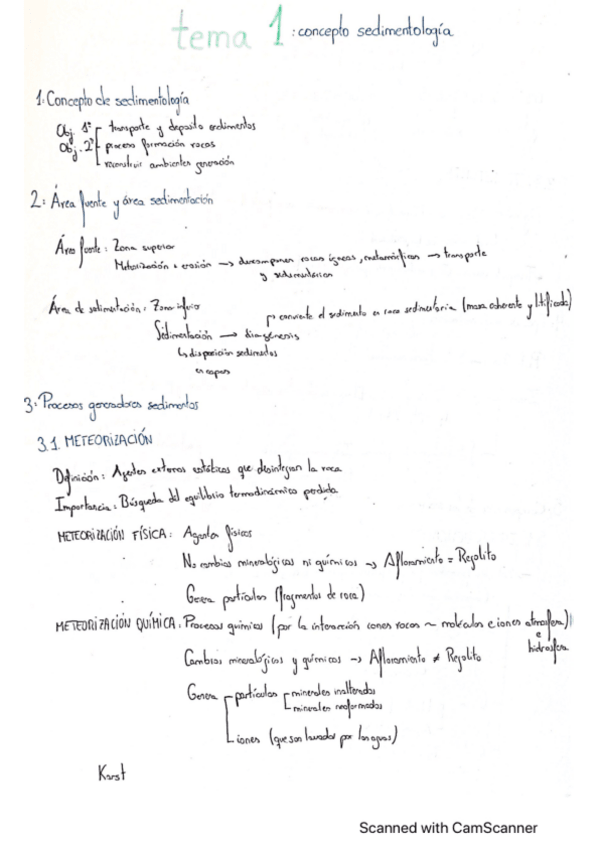 tema 1: concepto sedimentología
1: Concepto de sedimentología
Obj. 1º transporte y deposito sedimentos
Obj. 2º proceso formación rocas
reconstruir ambientes generación
2: Área fuente y área sedimentación
Área fuente: Zona superior
Meteorización + erosión → descomponen rocas ígneas, metamórficas → transporte
y sedimentarias
Área de sedimentación: Zona inferior
→ convierte el sedimento en roca sedimentaria (masa coherente y litificada)
Sedimentación → diagénesis
↳ disposición sedimentos
en capas
3: Procesos generadores sedimentos
3.1. METEORIZACIÓN
Definición: Agentes externos estáticos que desintegran la roca
Importancia: Búsqueda del equilibrio termodinámico perdida
METEORIZACIÓN FÍSICA: Agentes físicos
No cambios mineralógicos ni químicos → Afloramiento = Regolito
Genera partículas (fragmentos de roca)
METEORIZACIÓN QUÍMICA: Procesos químicos (por la interacción iones rocas ~ moléculas e iones atmosfera)
e
hidrosfera
Cambios mineralógicos y químicos → Afloramiento ≠ Regolito
Genera partículas minerales inalterados
minerales neoformados
iones (que son lavados por las aguas)
Karst
Scanned with CamScanner